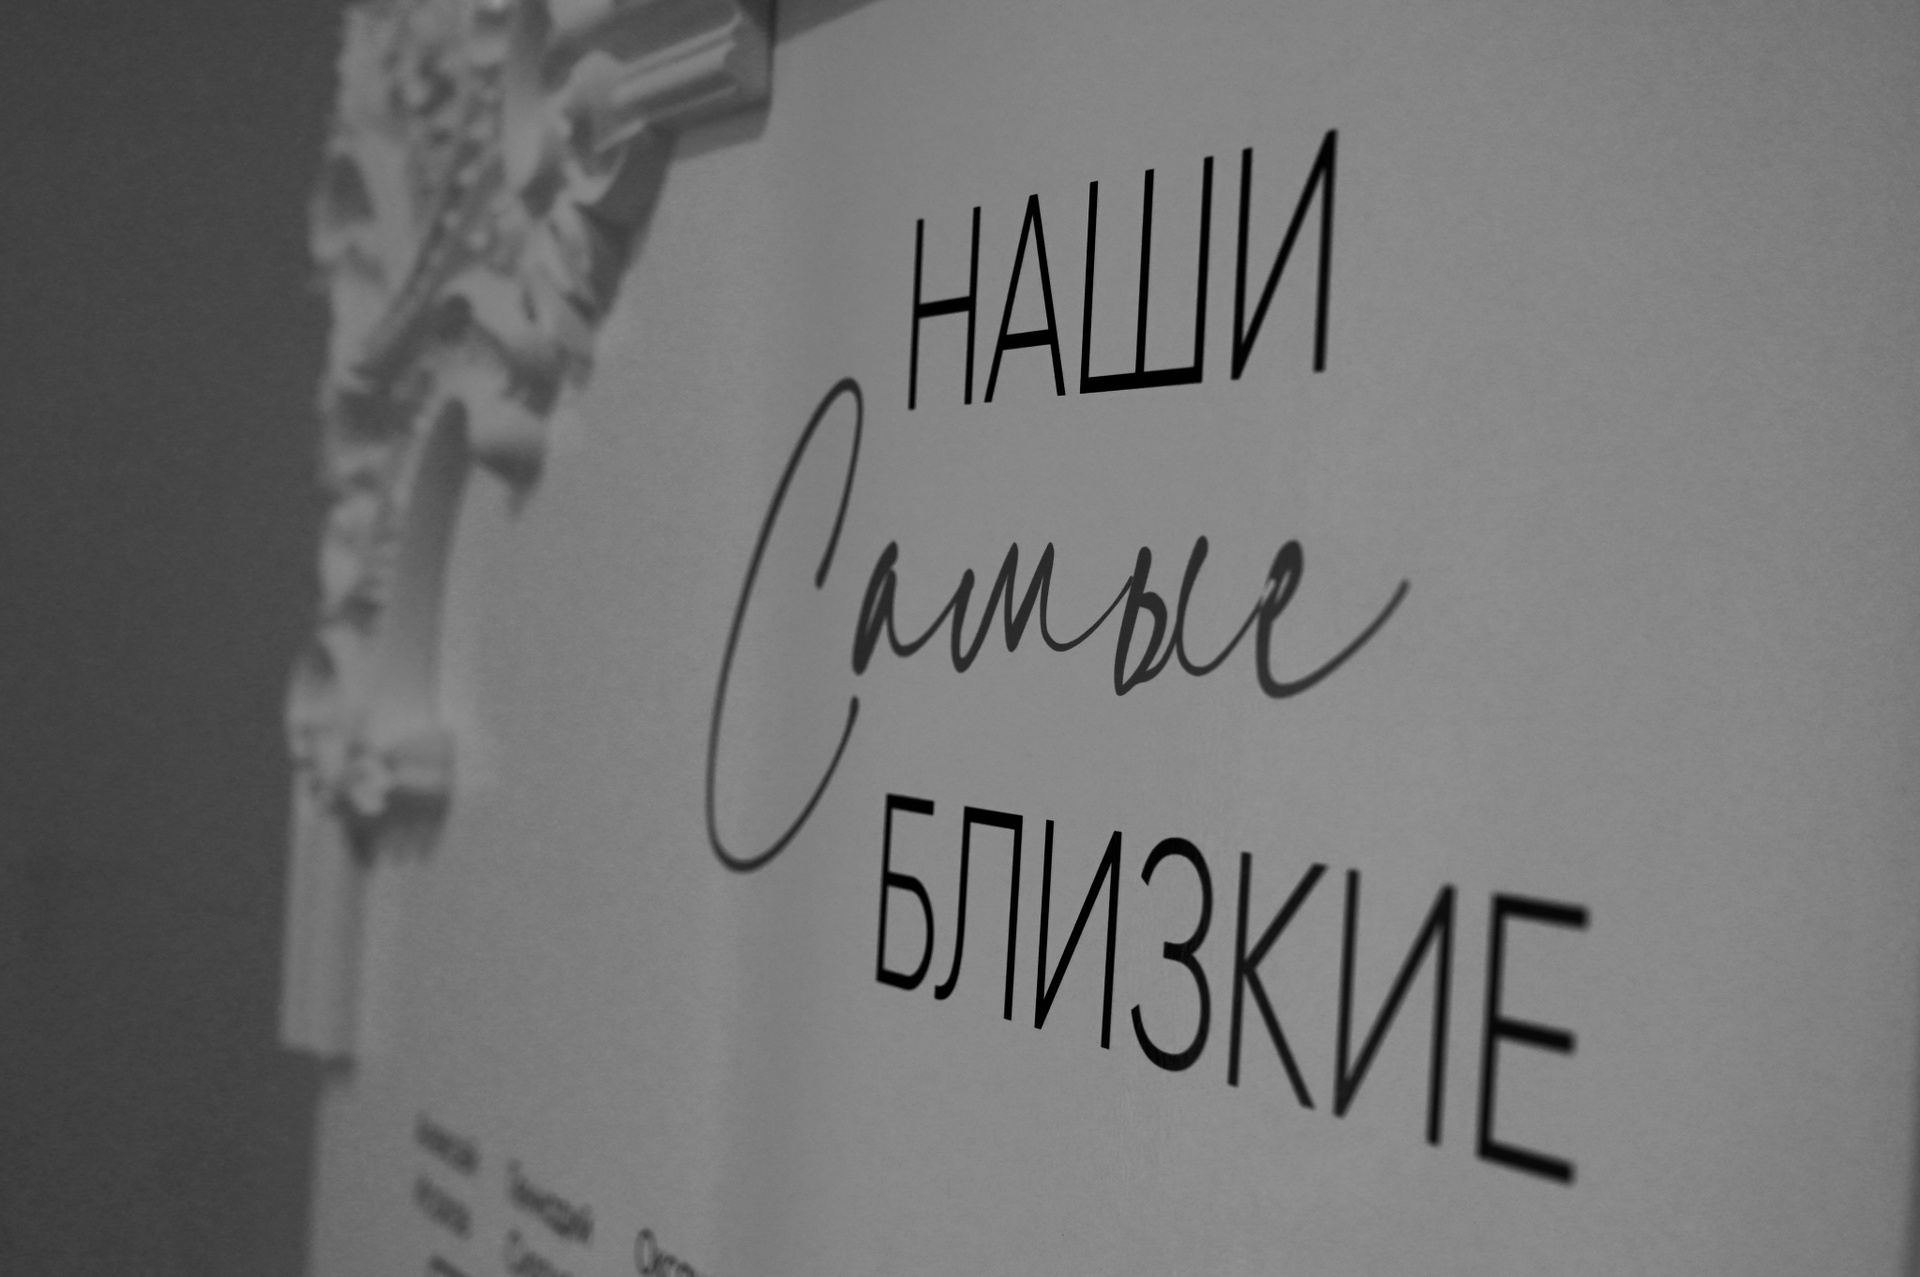 НАШИ
Самые
БЛИЗКИЕ